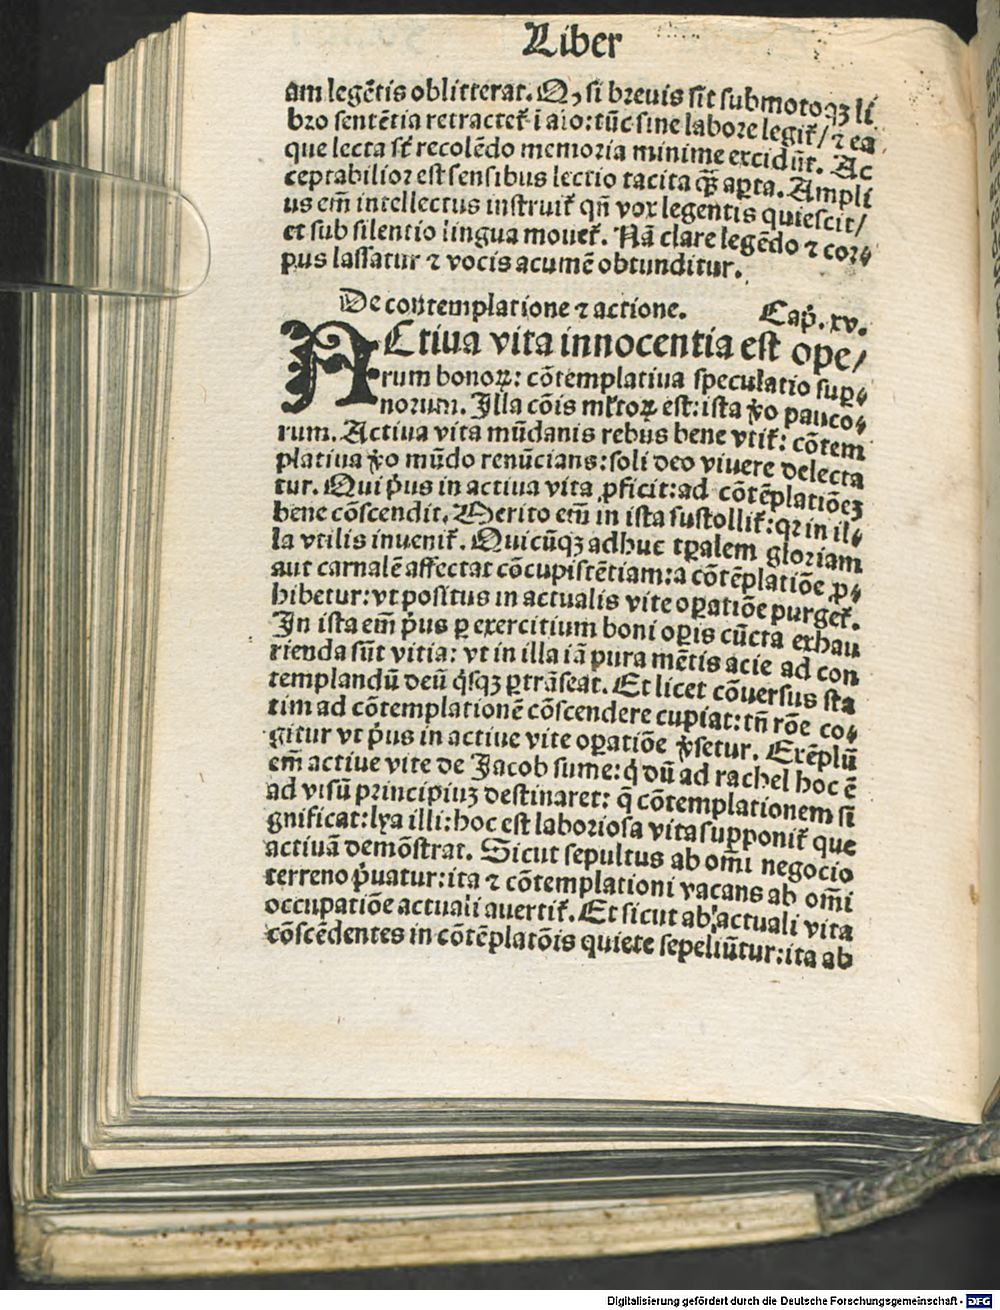 Liber
am legētis oblitterat. Qꝫ si breuis sit submotoqꝫ li
bro sentētia retractet̃ ī aīo: tūc sine labore legit̃/ ⁊ ea
que lecta st̃ recolēdo memoria minime excidūt. Ac
ceptabilior est sensibus lectio tacita qꝫ̃ aꝑta. Ampli
us em̄ intellectus instruit̃ qn̄ vox legentis quiescit/
et sub silentio lingua mouet̃. Nā clare legēdo ⁊ cor⸗
pus lassatur ⁊ vocis acumē obtunditur.
De contemplatione ⁊ actione. Cap̃. xv.
ACtiua vita innocentia est ope/
rum bonoꝝ: cōtemplatiua speculatio suꝑ⸗
norum. Illa cōis ml̃toꝝ est: ista ṽo pauco⸗
rum. Actiua vita mūdanis rebus bene vtit̃: cōtem
platiua ṽo mūdo renūcians: soli deo viuere delecta
tur. Qui p̃us in actiua vita ꝓficit: ad cōtēplatiōeꝫ
bene cōscendit. Merito em̄ in ista sustollit̃: qꝛ in il⸗
la vtilis inuenit̃. Quicūqꝫ adhuc tꝑalem gloriam
aut carnalē affectat cōcupiscētiam: a cōtēplatiōe ꝓ⸗
hibetur: vt positus in actualis vite oꝑatiōe purget̃.
In ista em̄ p̃us ꝑ exercitium boni oꝑis cūcta exhau
rienda sūt vitia: vt in illa iā pura mētis acie ad con
templandū deū q̇sqꝫ ꝑtrāseat. Et licet cōuersus sta
tim ad cōtemplationē cōscendere cupiat: tn̄ rōe co⸗
gitur vt p̃us in actiue vite oꝑatiōe ṽsetur. Exēplū
em̄ actiue vite de Jacob sume: q̇ dū ad rachel hoc ē
ad visū principiuꝫ destinaret: q̄ cōtemplationem si
gnificat: lya illi: hoc est laboriosa vita supponit̃ que
actiuā demōstrat. Sicut sepultus ab om̄i negocio
terreno p̃uatur: ita ⁊ cōtemplationi vacans ab om̄i
occupatiōe actuali auertit̃. Et sicut ab actuali vita
cōscēdentes in cōtēplatōis quiete sepeliūtur: ita ab
Digitalisierung gefördert durch die Deutsche Forschungsgemeinschaft - DFG